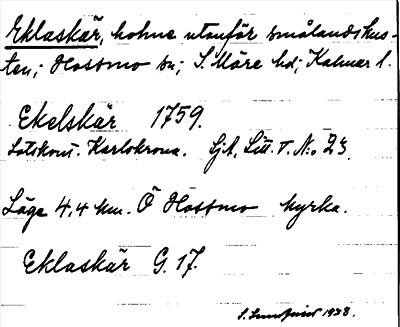 Eklaskär, holme utanför smålandskus-
ten; Hossmo sn; S. Möre hd; Kalmar l.
Ekelskär 1759.
Lotskont. Karlskrona. Sjk, Litt. T. No. 23.
Läge 4,4 km. Ö Hossmo kyrka.
Eklaskär G. 17.
S. Sundqvist 1938.